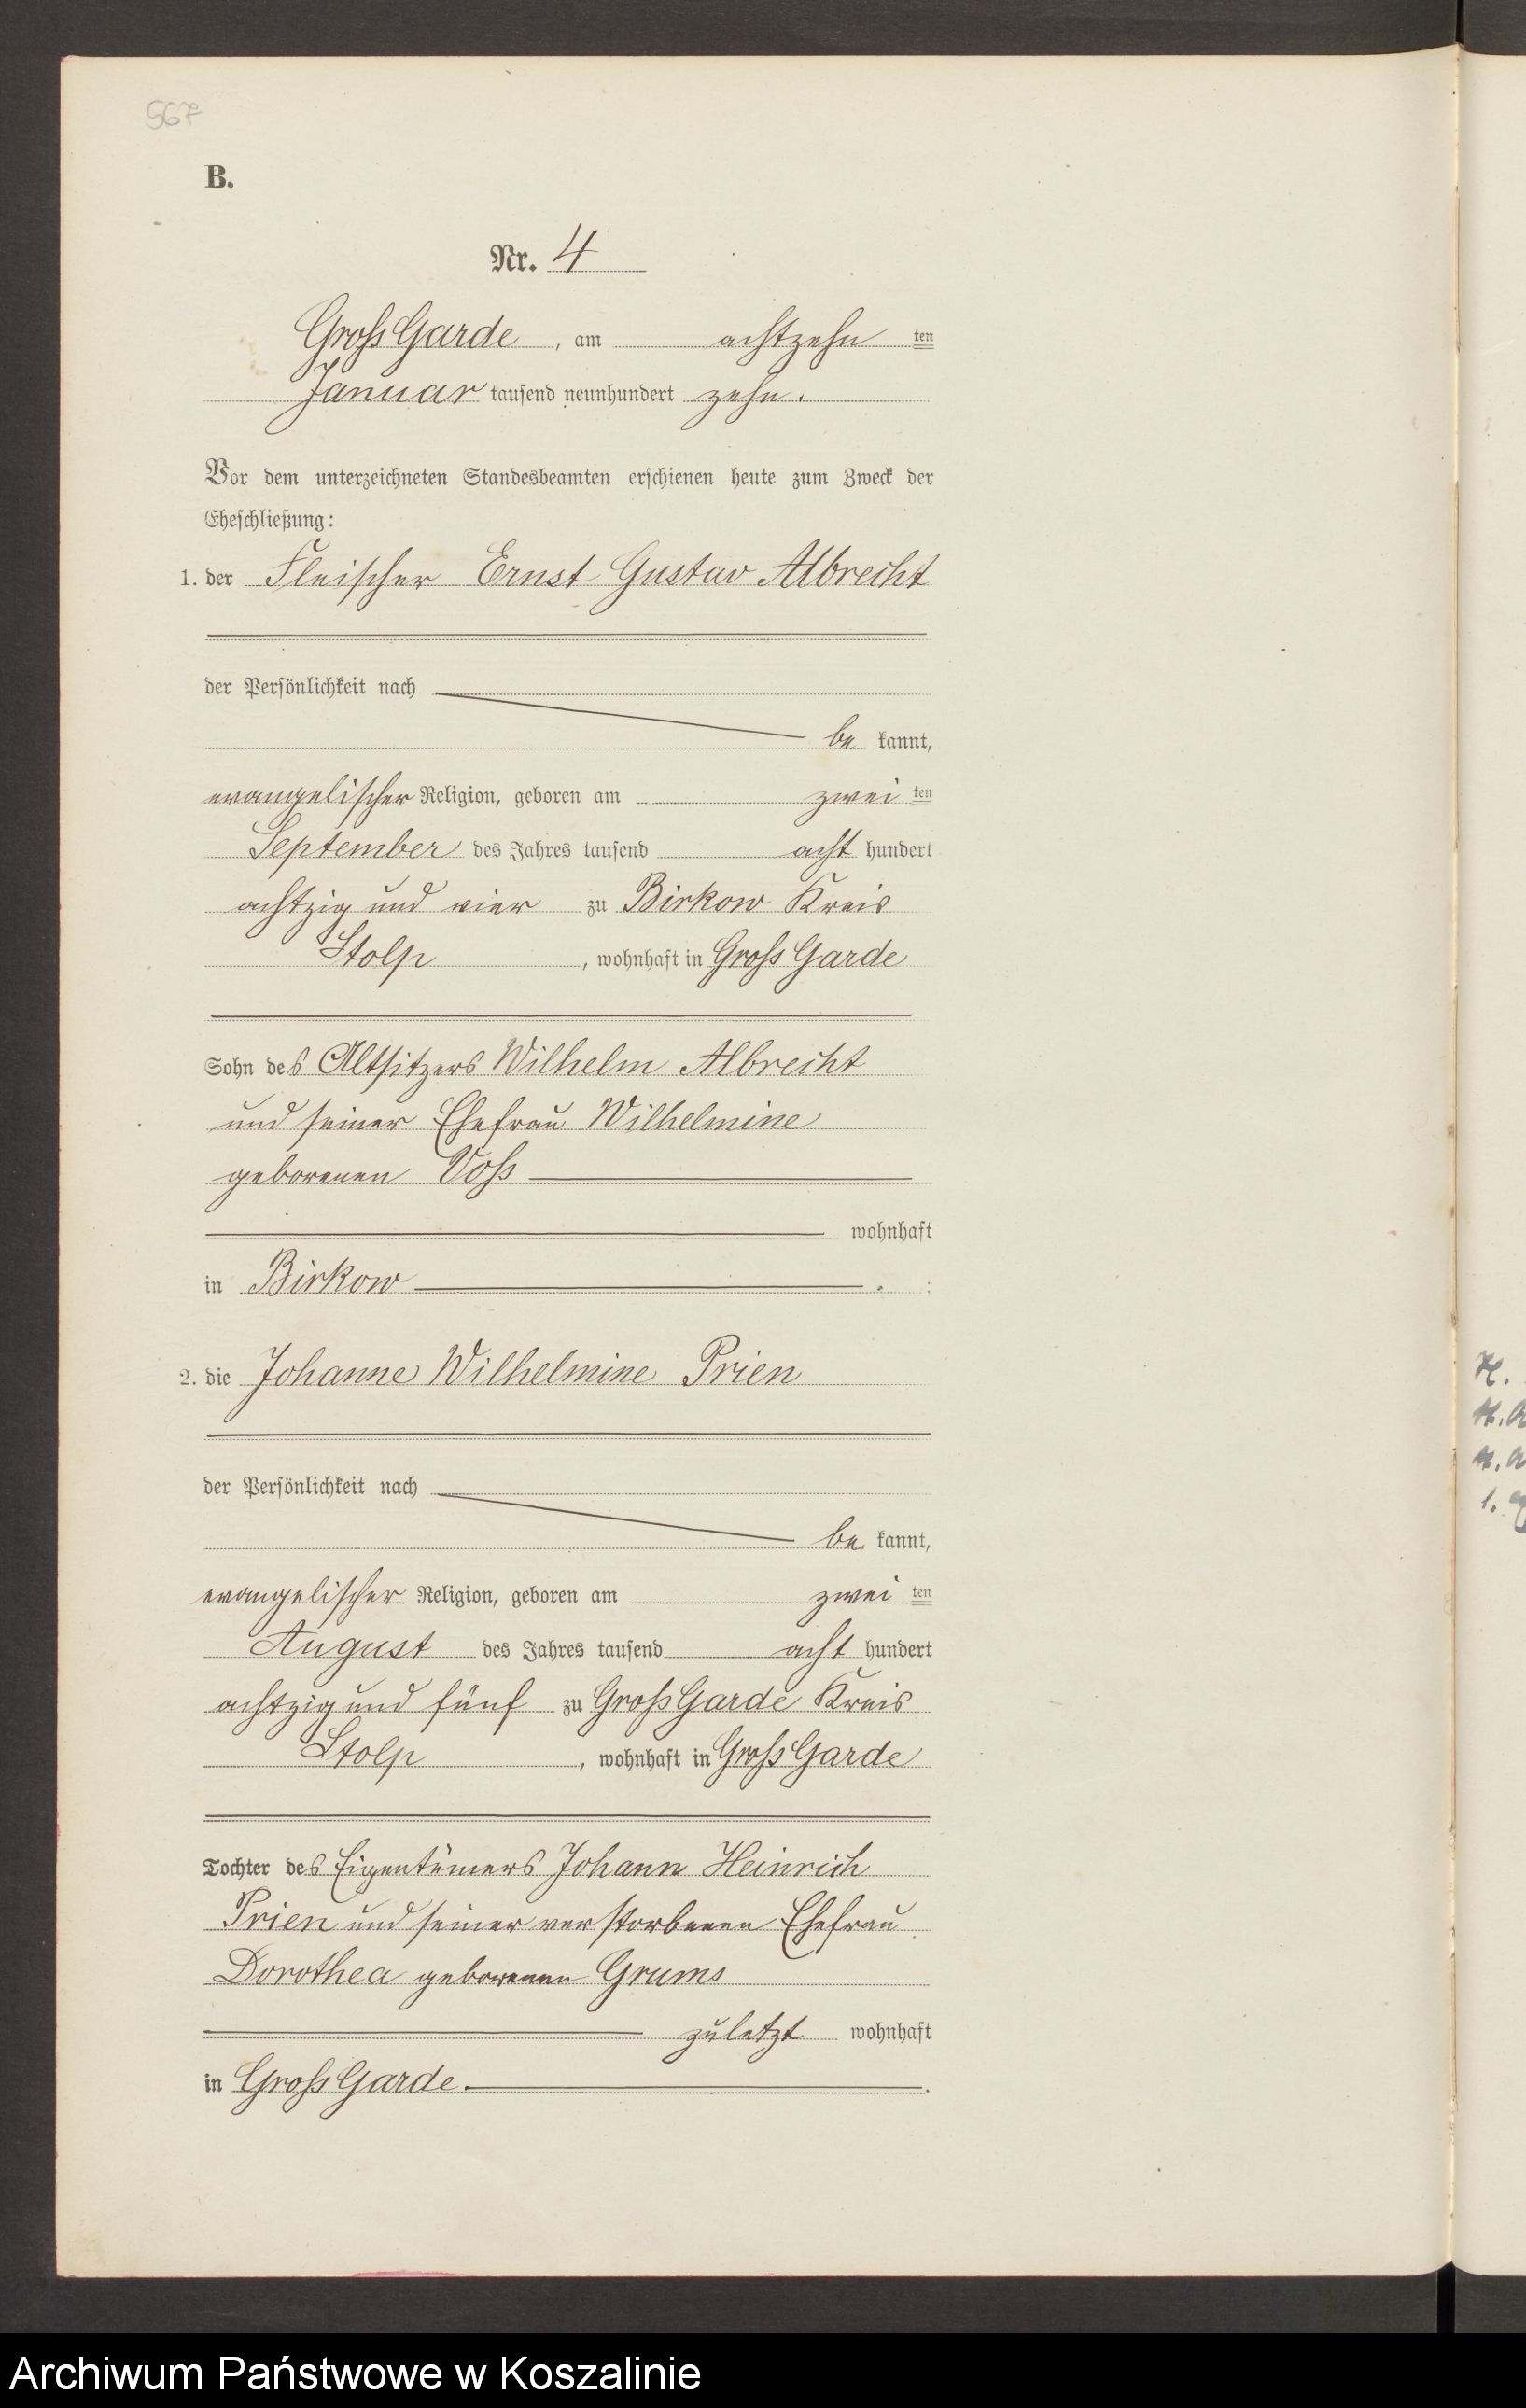 567
B.
Nr. 4
Gross Garde, am achtzehn ten
Januar tausend neunhundert zehn.
Vor dem unterzeichneten Standesbeamten erschienen heute zum Zweck der
Eheschließung:
1. der Fleischer Ernst Gustav Albrecht
der Persönlichkeit nach
be kannt,
evangelischer Religion, geboren am zwei ten
September des Jahres tausend acht hundert
achtzig und vier zu Birkow Kreis
Stolp, wohnhaft in Gross Garde
Sohn des Altsitzers Wilhelm Albrecht
und seiner Ehefrau Wilhelmine
geborenen Voss
wohnhaft
in Birkow . ;
2. die Johanne Wilhelmine Prien
der Persönlichkeit nach
be kannt,
evangelischer Religion, geboren am zwei ten
August des Jahres tausend acht hundert
achtzig und fünf zu Gross Garde Kreis
Stolp, wohnhaft in Gross Garde
Tochter des Eigentümers Johann Heinrich
Prien und seiner verstorbenen Ehefrau
Dorothea geborenen Grums
zuletzt wohnhaft
in Gross Garde.
Archiwum Państwowe w Koszalinie